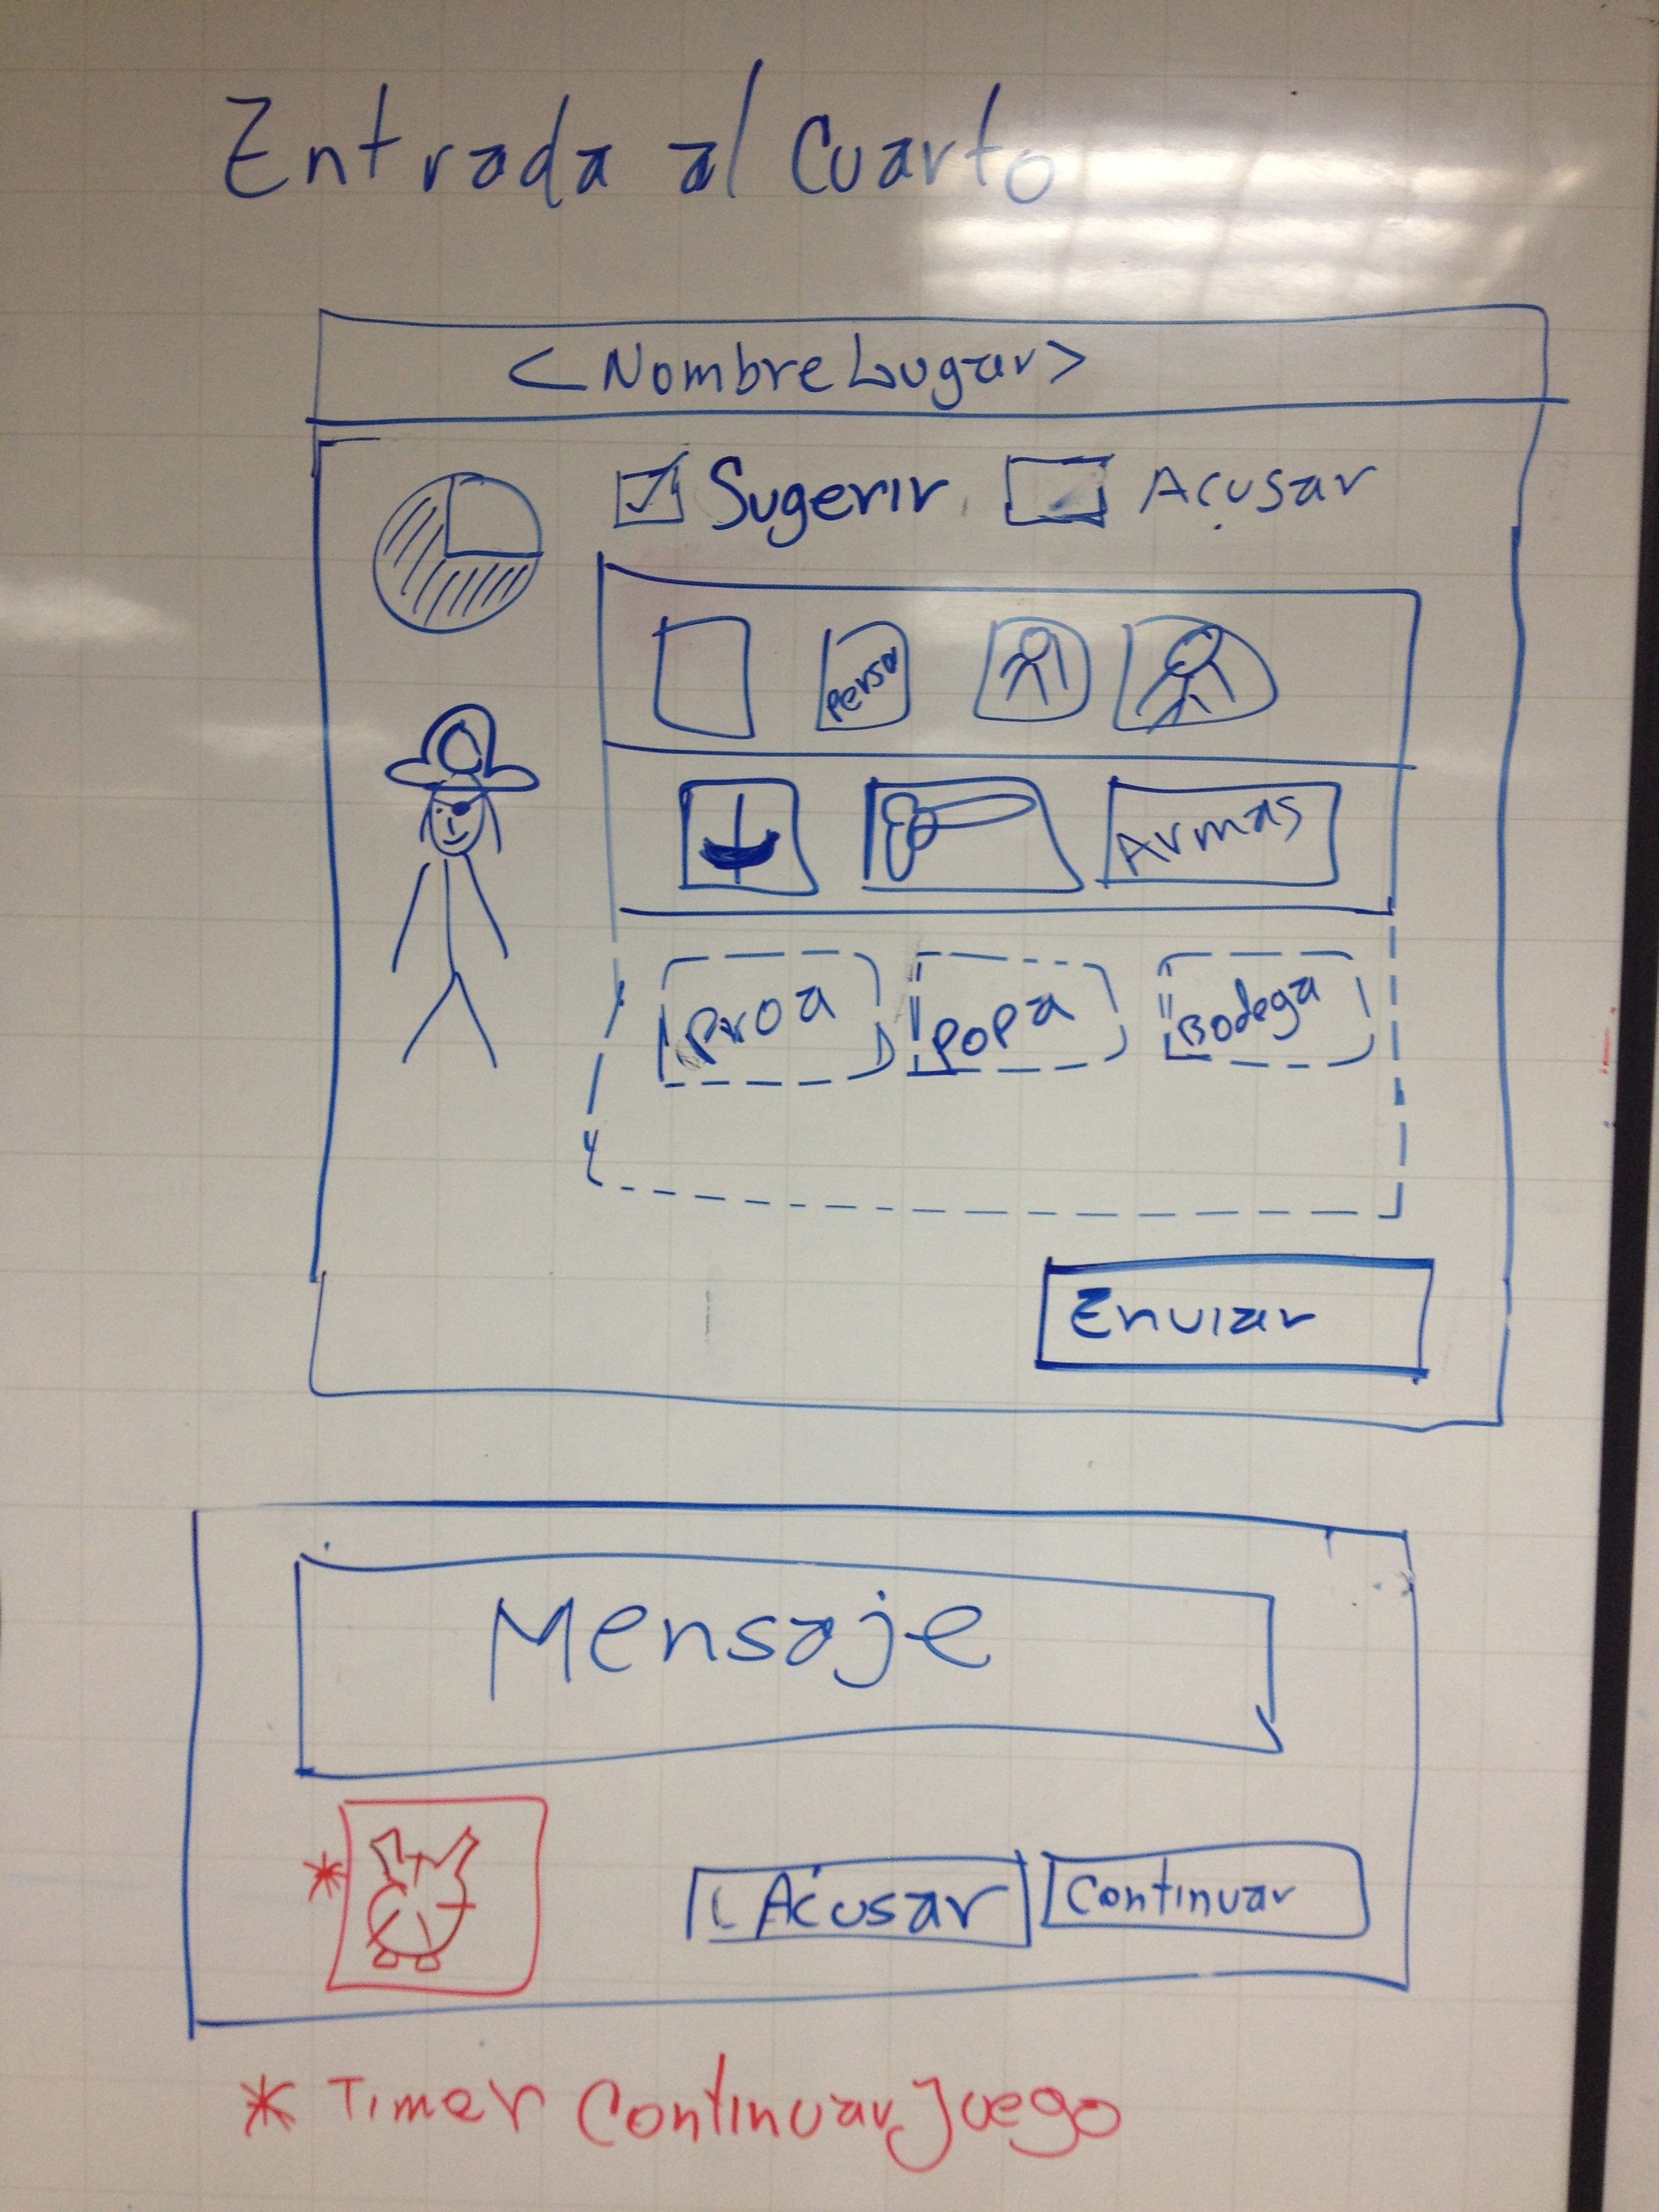 Entrada al Cuarto
<Nombre Lugar>
Sugerir Acusar
Perso
Armas
Proa Popa Bodega
Enviar
Mensaje
Acusar Continuar
* Timer Continuar Juego